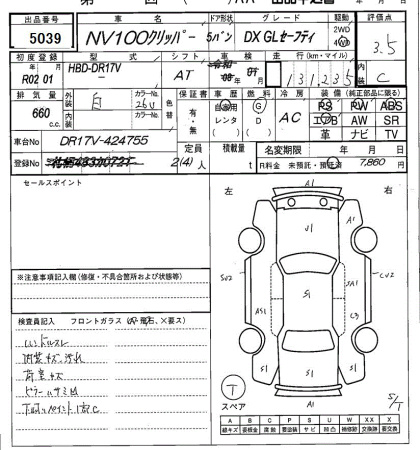 出品番号 車名 ドア形状 グレード 駆動 評価点
5039 NV100クリッパー 5バン DX GLセーフティ 2WD 4WD 3.5
初度登録 型式 シフト 車検 走行(km・マイル) 内装
R02 01 HBD-DR17V AT 131,235 C
排気量 外装 色 カラーNo. 色替 保証書 車歴 燃料 冷房 装備(純正部品に限る)
660 c.c. 白 26U 有・無 自家用 レンタ G D AC PS PW ABS
エアB AW SR
革 ナビ TV
車台No DR17V-424755 定員 積載量 名変期限 年 月 日
登録No 2(4)人 t R料金 未預託・預託済 7,860 円
セールスポイント
左 右
A1
U1
S1
SA1
AS1
C3
S1 S1
A1
T
スペア
S/T
※注意事項記入欄(修復・不具合箇所および状態等)
検査員記入 フロントガラス(、×要ス)
ハンドルスレ
内装キズ汚れ
荷室キズ
A B C P S U W X XX
線キズ 要板金 腐 要塗装 サビ 凹凸 補修跡 要交換